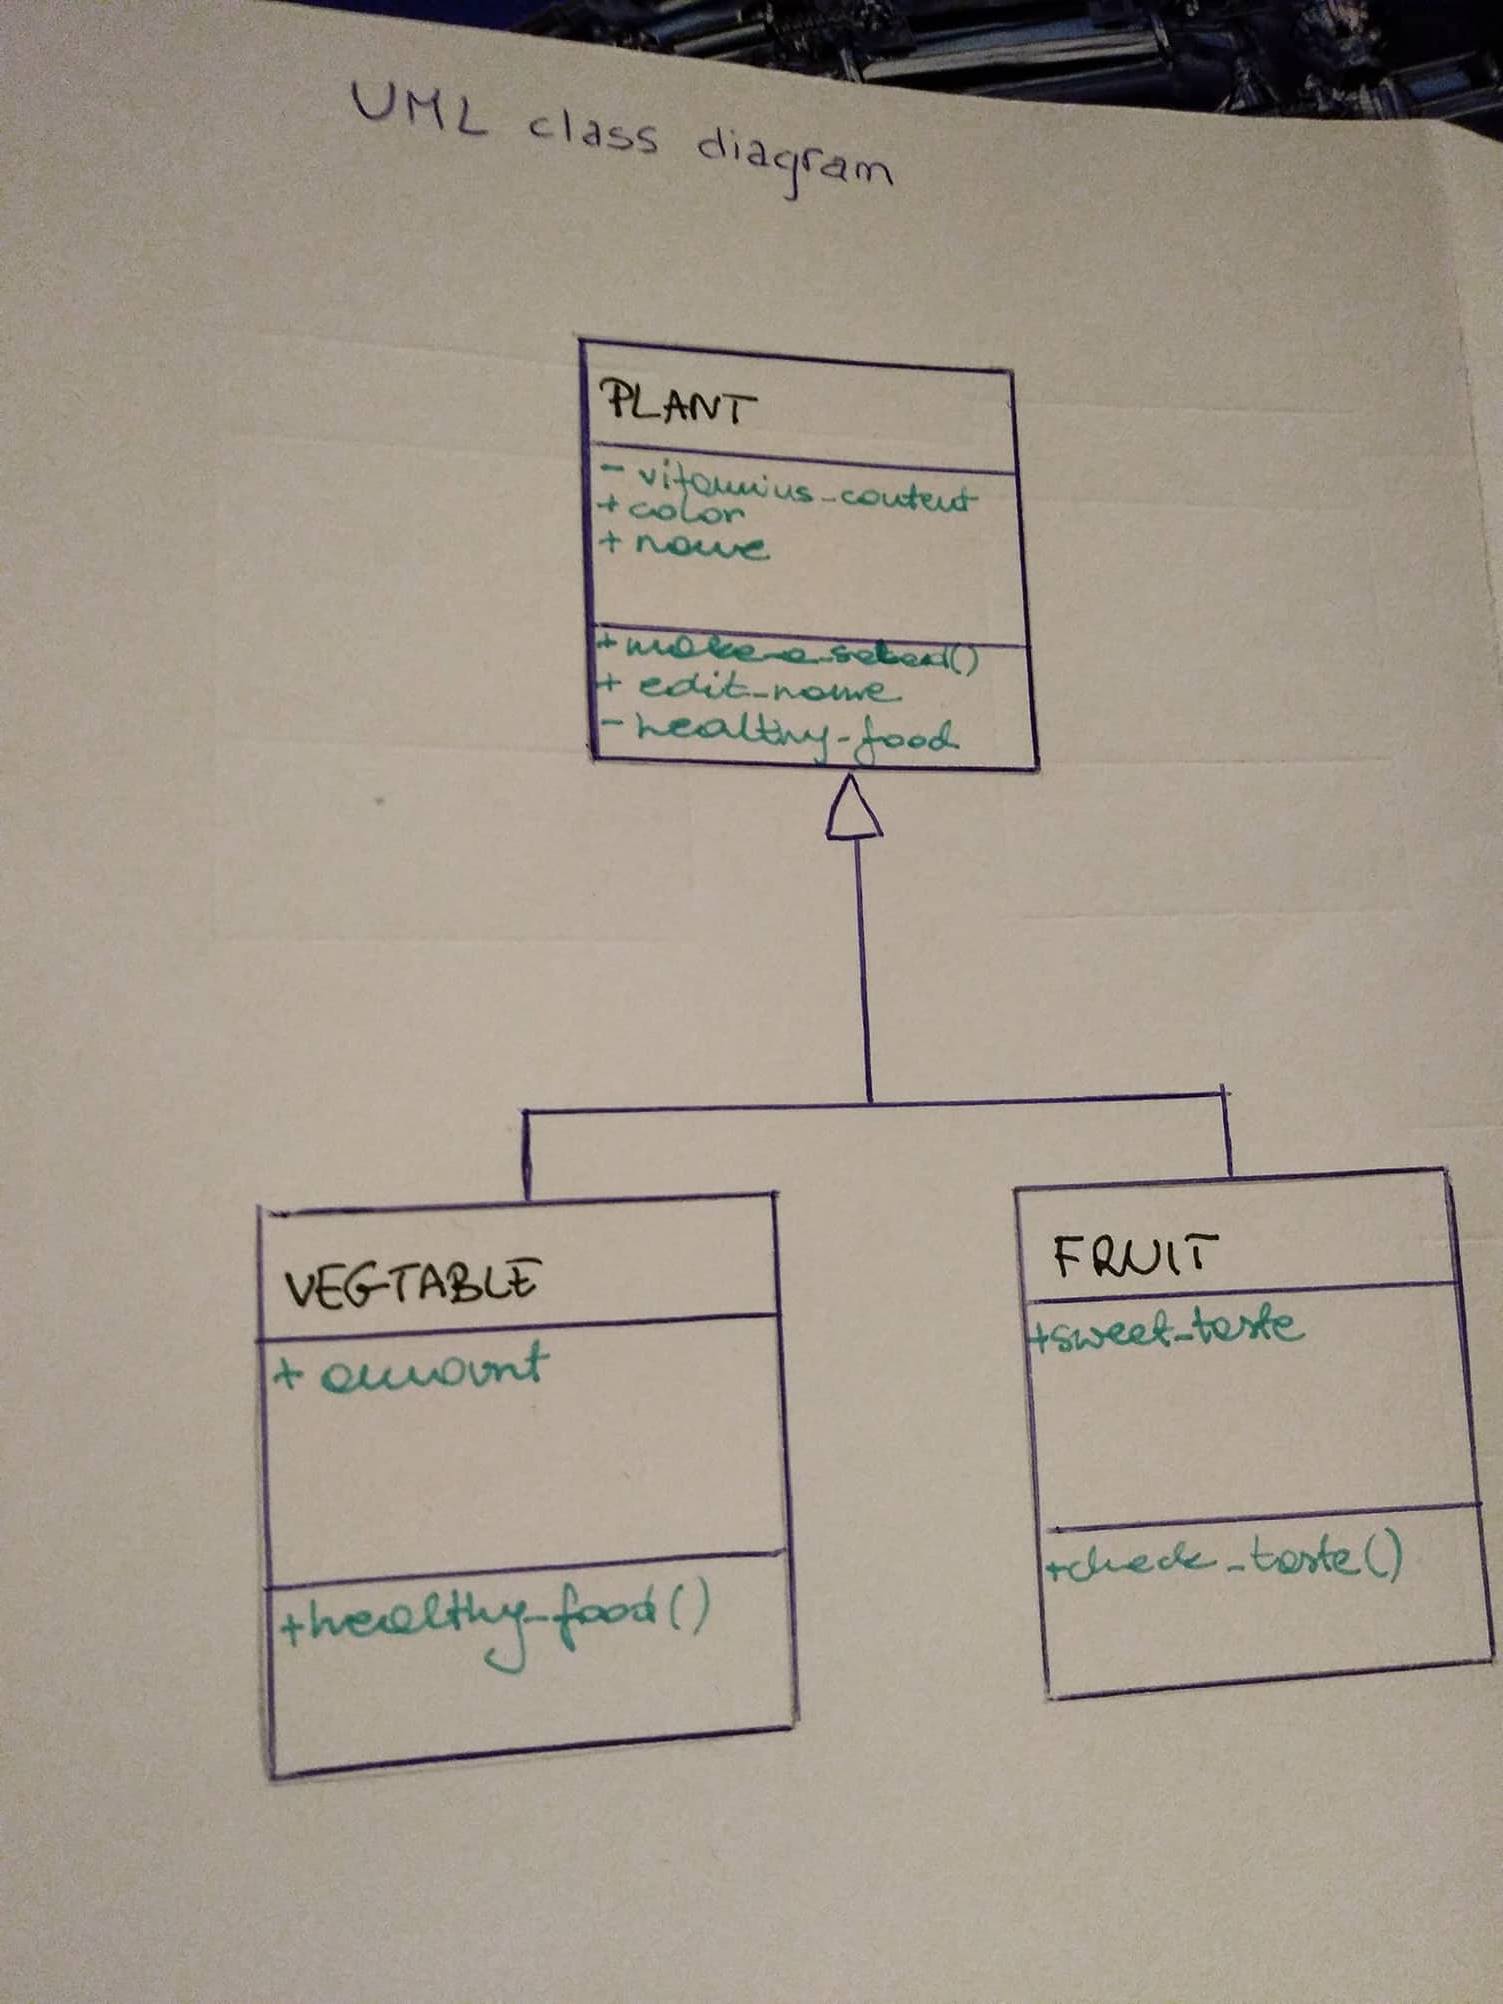 UML class diagram
PLANT
- vitamins_content
+ color
+ name
+ make_a_salad()
+ edit_name
- healthy_food
VEGTABLE
+ amount
+healthy_food()
FRUIT
+sweet_taste
+check_taste()